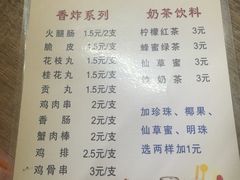 香炸系列
火腿肠 1.5元/2支
脆皮 1.5元/支
花枝丸 1.5元/支
桂花丸 1.5元/支
贡丸 1.5元/支
鸡肉串 2元/支
香肠 2元/支
蟹肉棒 2元/支
鸡排 2.5元/支
鸡骨串 3元/支
奶茶饮料
柠檬红茶 3元
蜂蜜绿茶 3元
仙草蜜 3元
奶茶 3元
加珍珠、椰果、
仙草蜜、明珠
选两样加1元